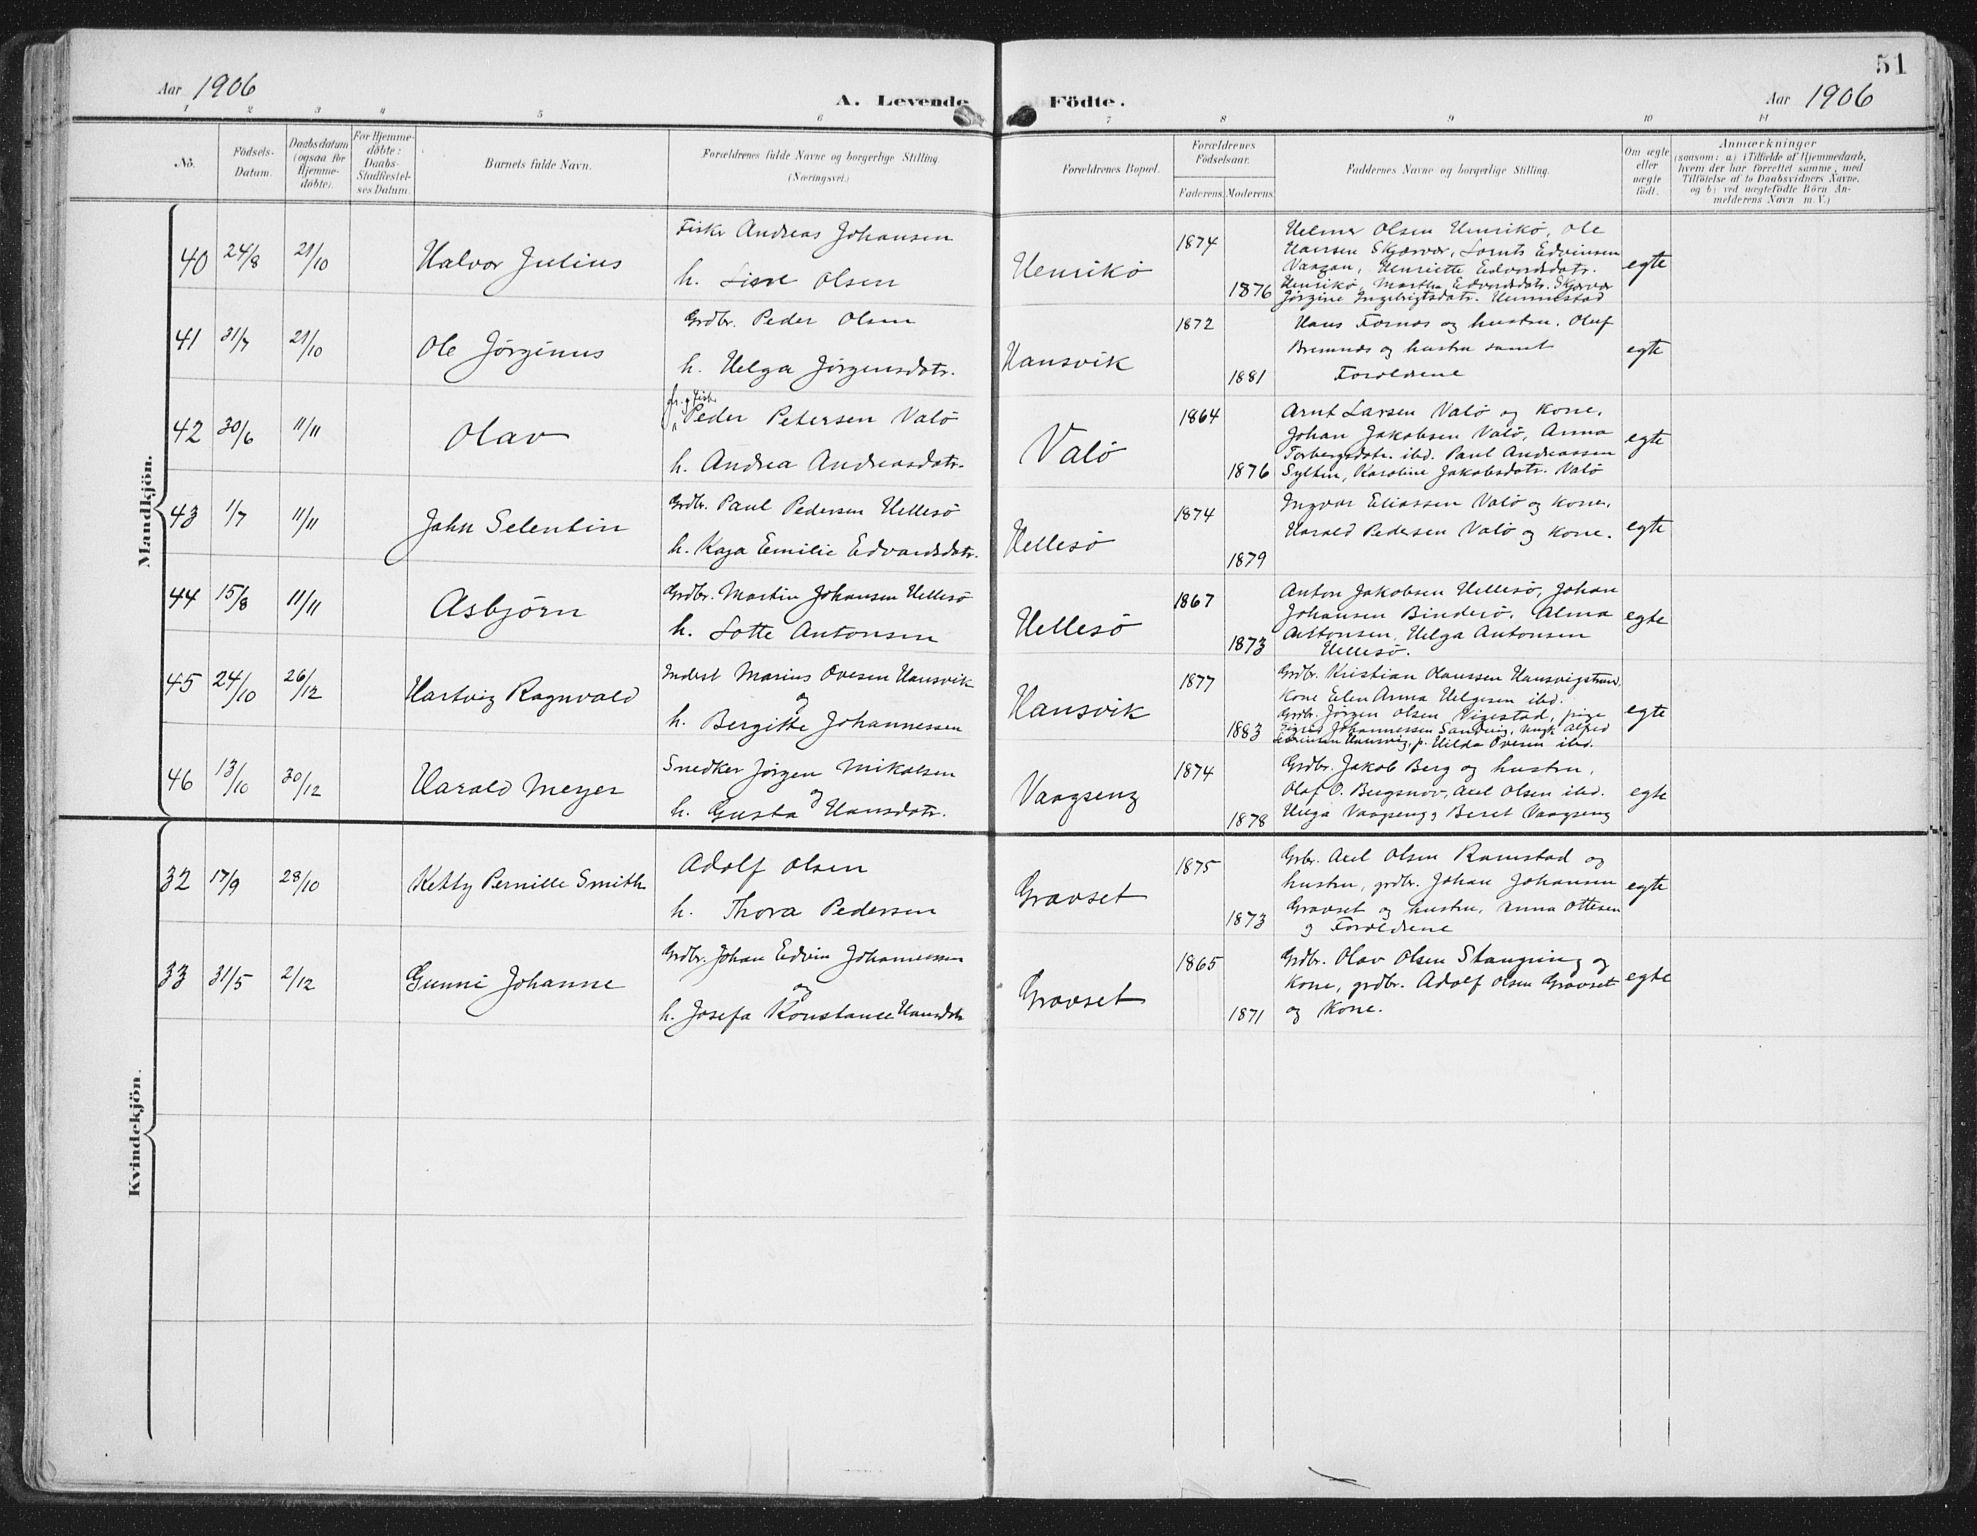 51
Aar 1906
A. Levende Födte.
Aar 1906
1 2 3 4 5 6 7 8 9 10 11
No.
Födsels-
Datum.
Daabsdatum
(ogsaa for
Hjemme-
døbte).
For Hjemme-
døbte:
Daabs-
Stadfæstel-
ses Datum.
Barnets fulde Navn.
Forældrenes fulde Navne og borgerlige Stilling
(Næringsvei.)
Forældrenes Bopæl.
Forældrenes
Födselsaar.
Faderens.
Moderens.
Faddernes Navne og borgerlige Stilling.
Om ægte
eller
uægte
födt.
Anmærkninger
(saasom: a) i Tilfælde af Hjemmedaab,
hvem der har forrettet samme, med
Tilföielse af to Daabsvidners Navne,
og b) ved uægtefödte Börn An-
melderens Navn m. V.)
Mandkjön.
40 24/8 21/10 Halvor Julius
Fisker Andreas Johansen
h. Lise Olsen
Henrikö 1874 1876
Helmer Olsen Henrikö, Ole
Hansen Skjærvær, Lornts Edvinsen
Vaagan, Henriette Edvardsdatr.
Henrikö, Martha Edvardsdatr. Skjærvær
Jörgine Ingebrigtsdatr. Hunnestad
egte
41 31/7 21/10 Ole Jörginus
Grdbr. Peder Olsen
h. Helga Jörgensdatr.
Hansvik 1872 1881
Hans Fornes og hustru. Oluf
Bremnes og hustru samt
Forældrene
egte
42 30/6 11/11 Olav
Peder Petersen Valö
h. Andrea Andreasdatr.
Valö 1864 1876
Arnt Larsen Valö og kone,
Johan Jakobsen Valö, Anna
Torbergsdatr. ibd. Paul Andreassen
Sylten, Karoline Jakobsdatr. Valö
egte
43 1/7 11/11 John Selentin
Grdbr. Paul Pedersen Hellesö
h. Kaja Emilie Edvardsdatr.
Hellesö 1874 1879
Ingvar Eliassen Valö og kone.
Harald Pedersen Valö og kone.
egte
44 15/8 11/11 Asbjörn
Grdbr. Martin Johansen Hellesö
h. Lotte Antonsen
Hellesö 1867 1873
Anton Jakobsen Hellesö, Johan
Johansen Binderö. Alma
Antonsen, Helga Antonsen
Hellesö.
egte
45 24/10 26/12 Hartvig Ragnvald
Inderst Marius Ovesen Hansvik
og
h. Bergitte Johannessen
Hansvik 1877 1883
Grdbr. Kristian Hanssen Hansvigstrand,
kone Elen Anna Helgesen ibd.
Grdbr. Jörgen Olsen Vigestad, pige
Sigrid Johannessen Sandvig, ungk. Alfred
Hansvig, p. Hilda Ovesen ibd.
egte
46 13/10 30/12 Harald Meyer
Snedker Jörgen Mikalsen
og
h. Gusta Hansdatr.
Vaagseng 1874 1878
Grdbr. Jakob Berg og hustru,
Olaf O. Bergsnov, Axel Olsen ibd.
Helga Vaagseng, Beret Vaagseng
egte
Kvindekjön.
32 17/9 28/10 Ketty Pernille Smith
Adolf Olsen
h. Thora Pedersen
Gravset 1875 1873
Grbr. Axel Olsen Ramstad og
hustru, grdbr. Johan Johansen
Gravset og hustru, Anna Ottesen
og Forældrene
egte
33 31/5 2/12 Gunni Johanne
Grdbr. Johan Edvin Johannessen
og
h. Josefa Konstance Hansdatr
Gravset 1865 1871
Grdbr. Olav Olsen Stangring og
kone, grdbr. Adolf Olsen Gravset
og kone.
egte